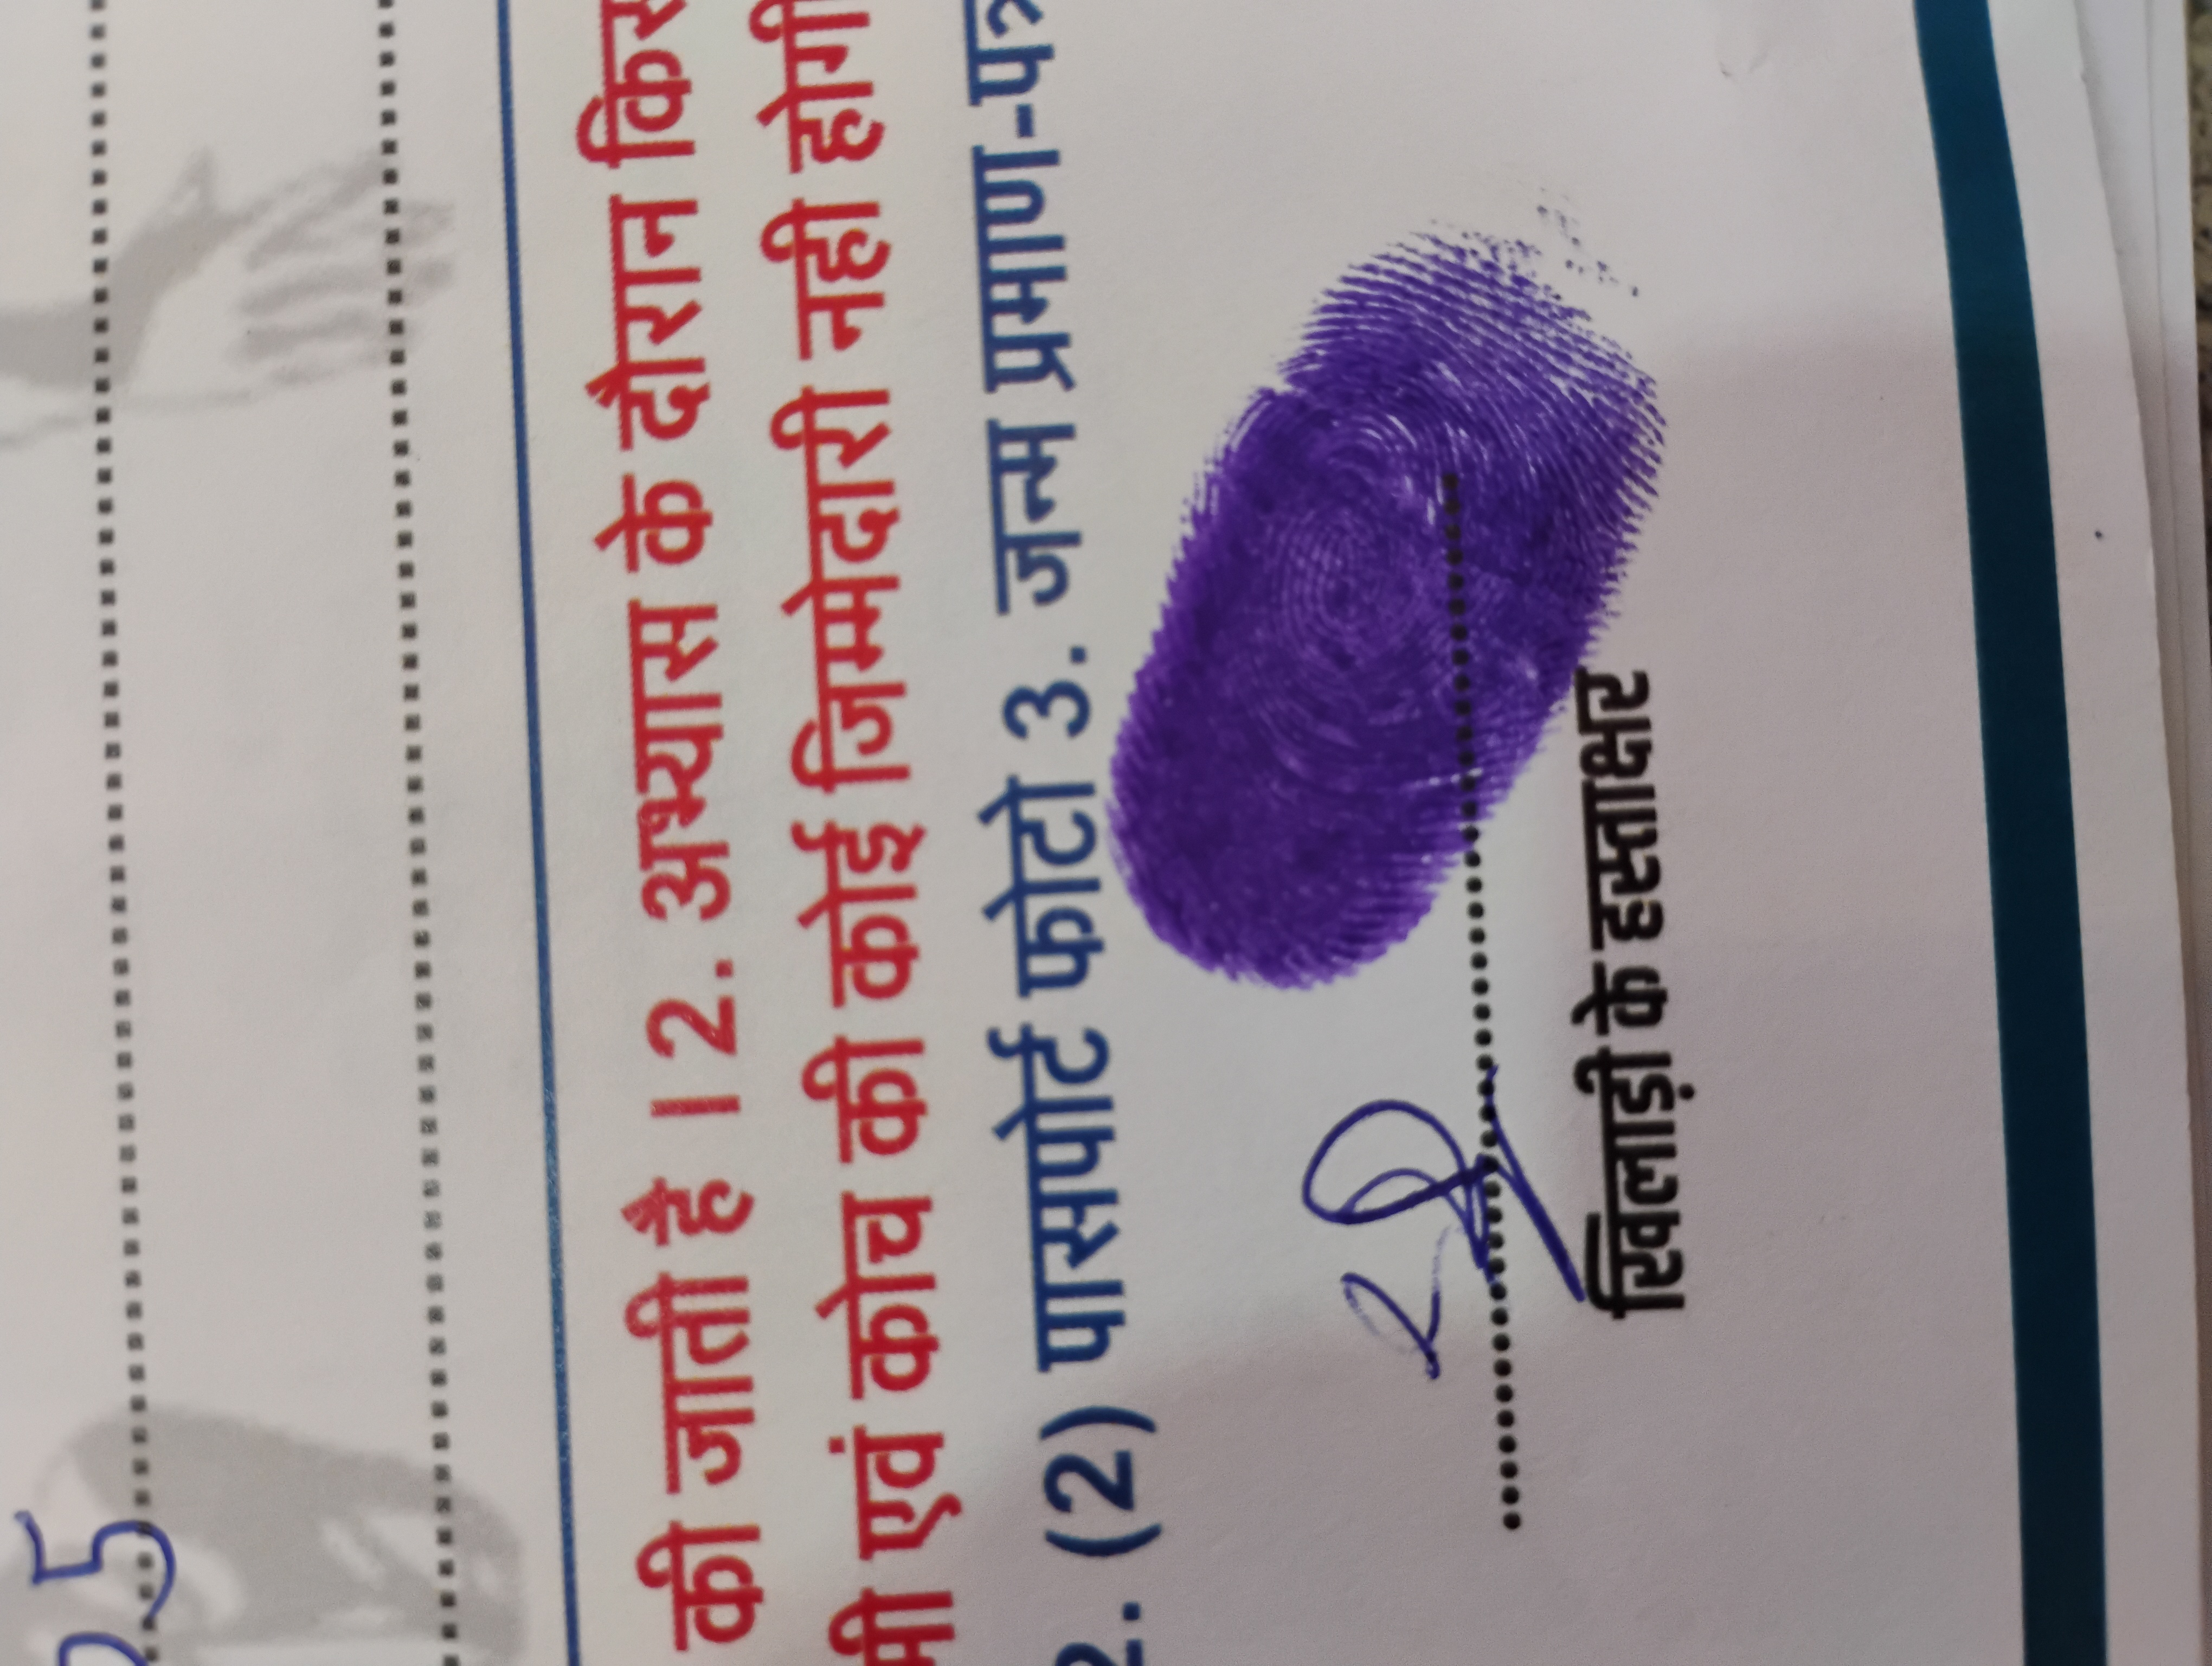 05
की जाती है । 2. अभ्यास के दौरान किस
मी एवं कोच की कोई जिम्मेदारी नही होगी
2. (2) पासपोर्ट फोटो 3. जन्म प्रमाण-पत्र
खिलाड़ी के हस्ताक्षर